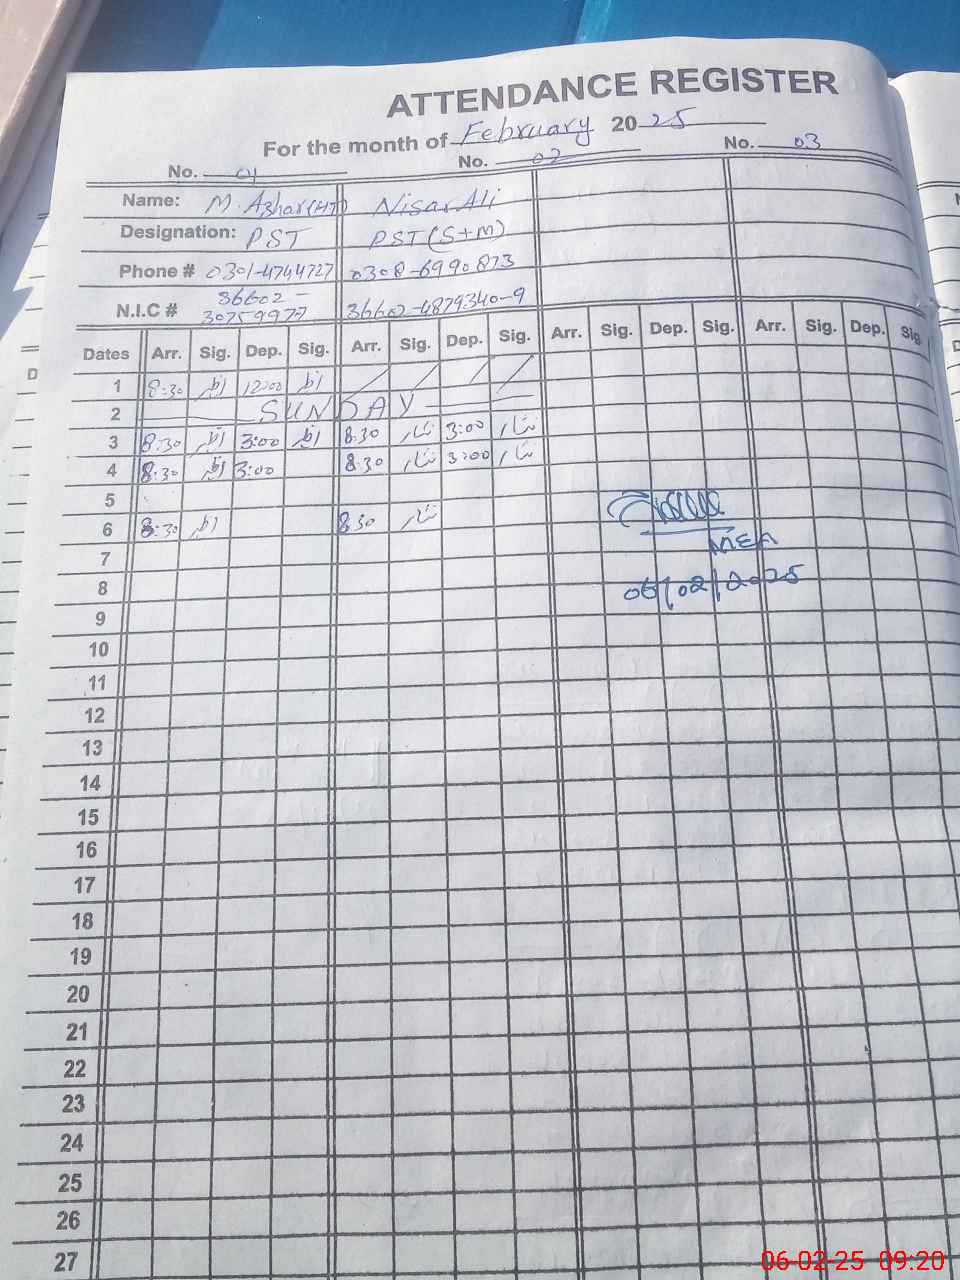 ATTENDANCE REGISTER
For the month of February 2025
No. 01 No. 02 No. 03
Name: M. Azhar (HT) Nisar Ali
Designation: PST PST (S+M)
Phone # 0301-4744727 0308-6990873
N.I.C # 36602-30759977 36602-4879340-9
Dates Arr. Sig. Dep. Sig. Arr. Sig. Dep. Sig. Arr. Sig. Dep. Sig. Arr. Sig. Dep. Sig.
1 8:30 12:00
2 SUNDAY
3 8:30 3:00 8:30 نثار 3:00 نثار
4 8:30 3:00 8:30 نثار 3:00 نثار
5
6 8:30 8:30 نثار
MEA
7
8 06/02/2025
9
10
11
12
13
14
15
16
17
18
19
20
21
22
23
24
25
26
27
06-02-25 09:20